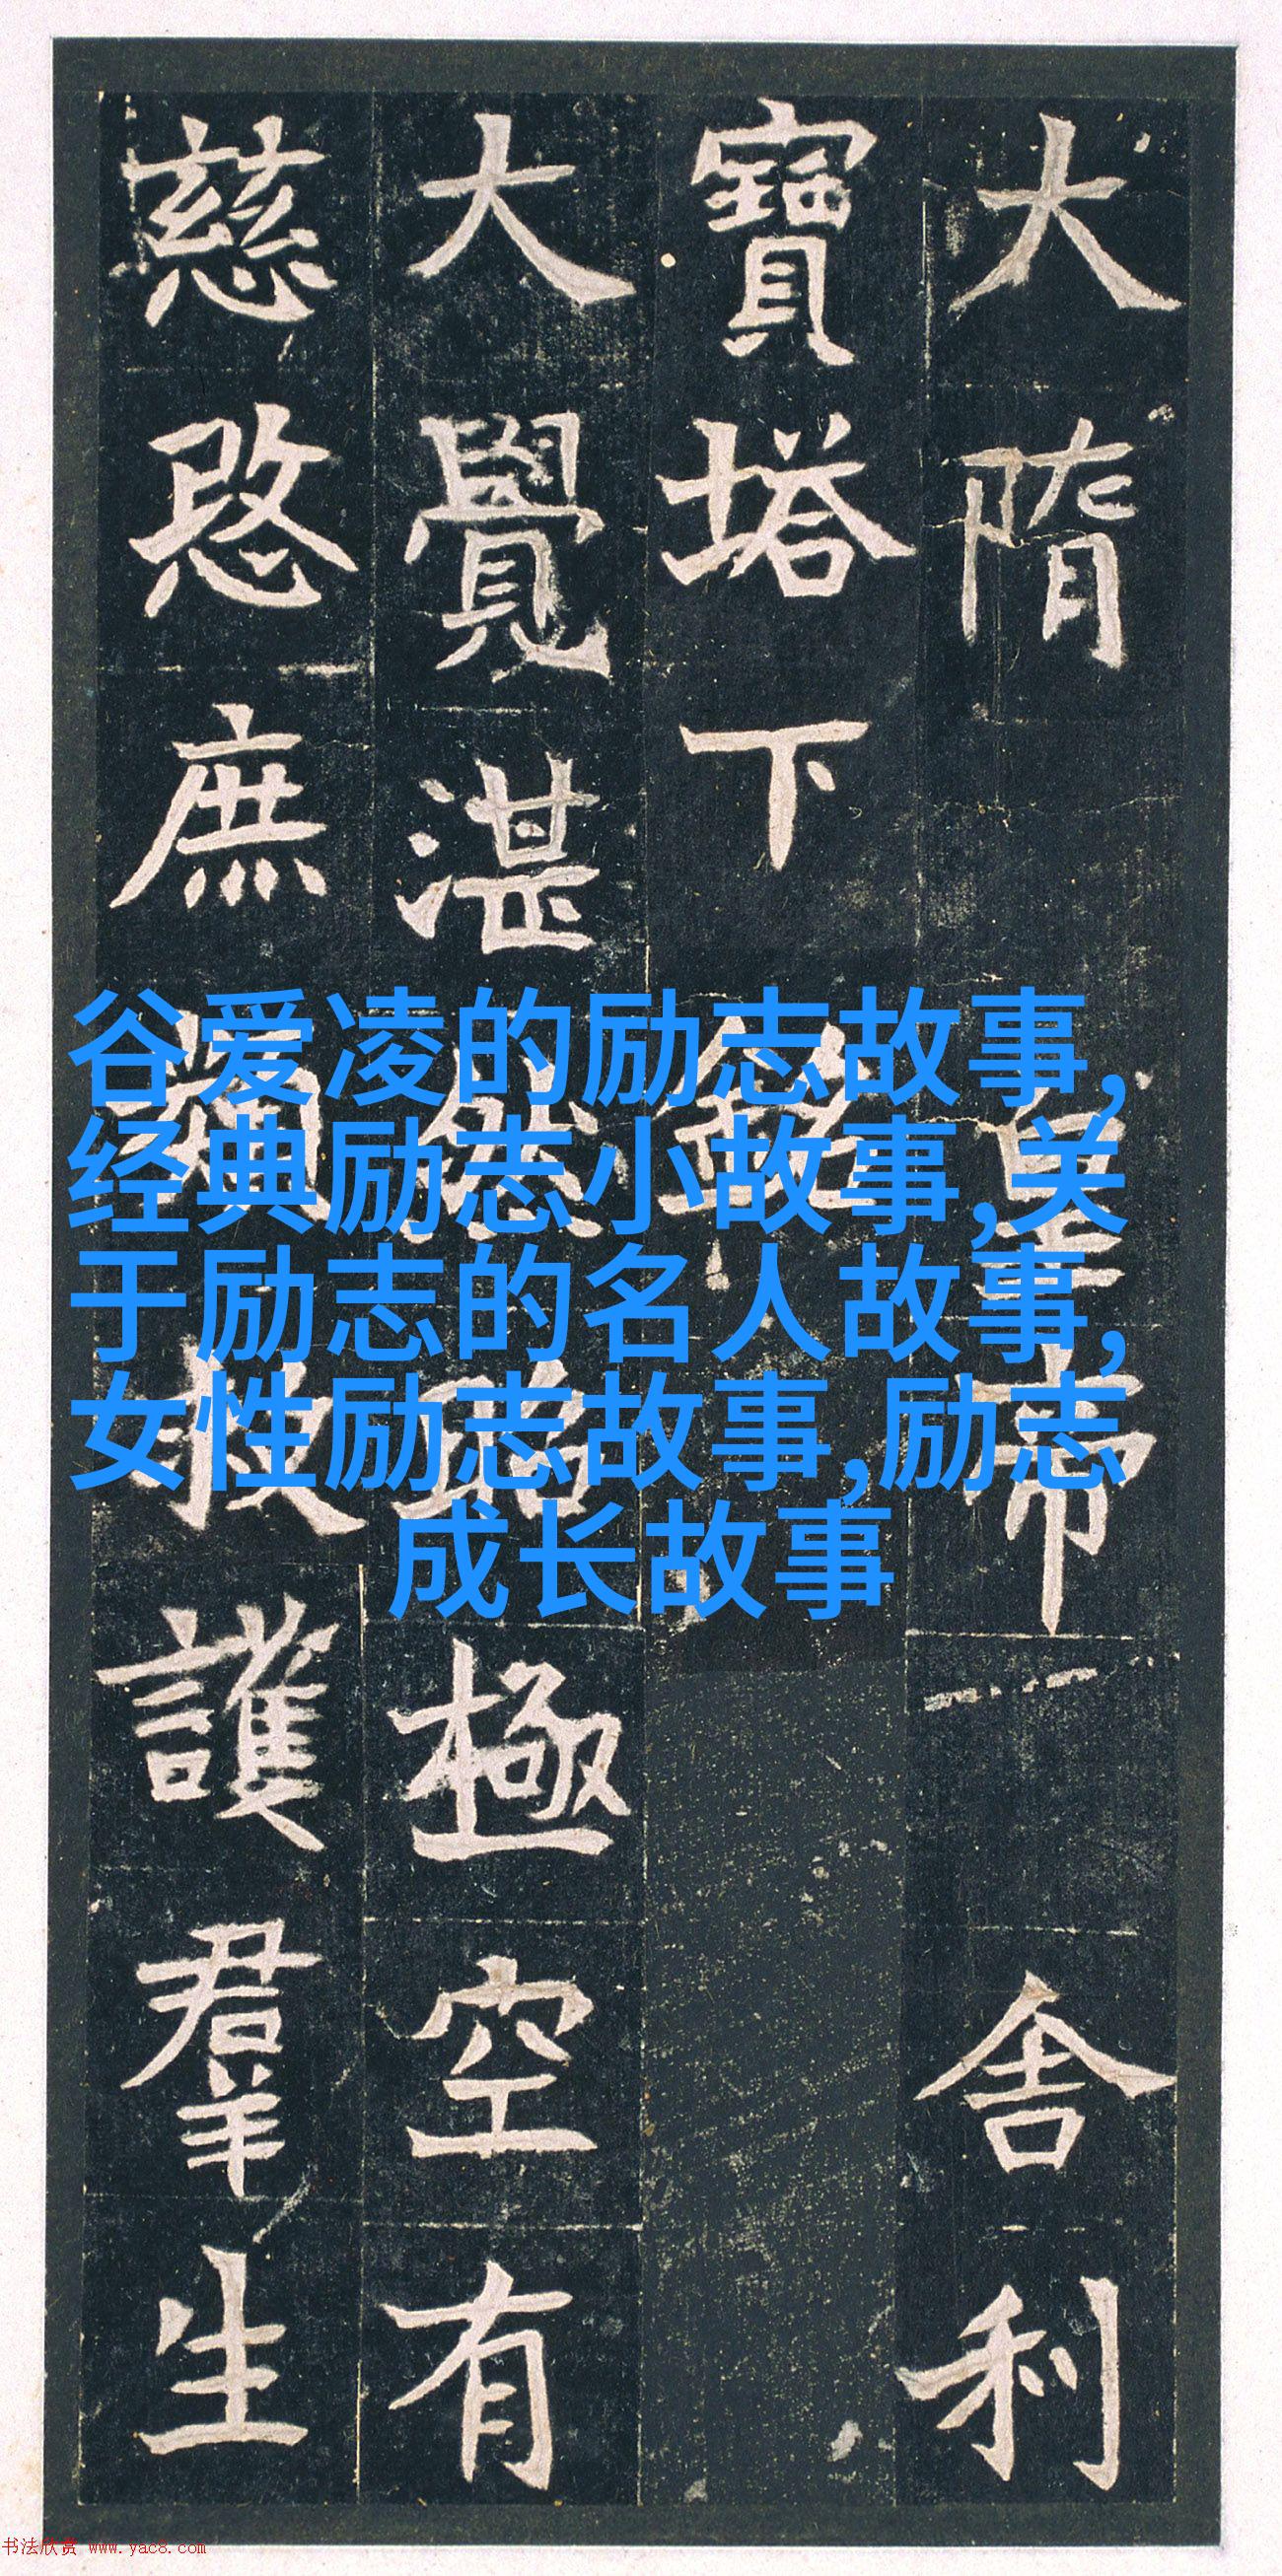 大隋皇帝舍利
寶塔下銘
大覺湛然昭極空有
慈愍庶類救護羣生
谷爱凌的励志故事,
经典励志小故事,关
于励志的名人故事,
女性励志故事,励志
成长故事
书法欣赏 www.yac8.com